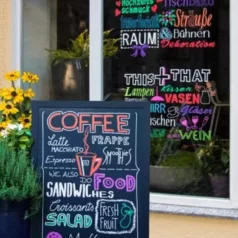 HOCHZEITS
SCHMUCK
TISCHDEKO
Sträuße
RAUM
& Bühnen
Dekoration
THIS + THAT
Lampen
Kissen
VASEN
Gläser
WEIN
COFFEE
Latte
MACCHIATO
FRAPPE
Espresso
Smoothies
WE ALSO
FOOD
SANDWICHES
Croissants
SALAD
FRESH
FRUIT